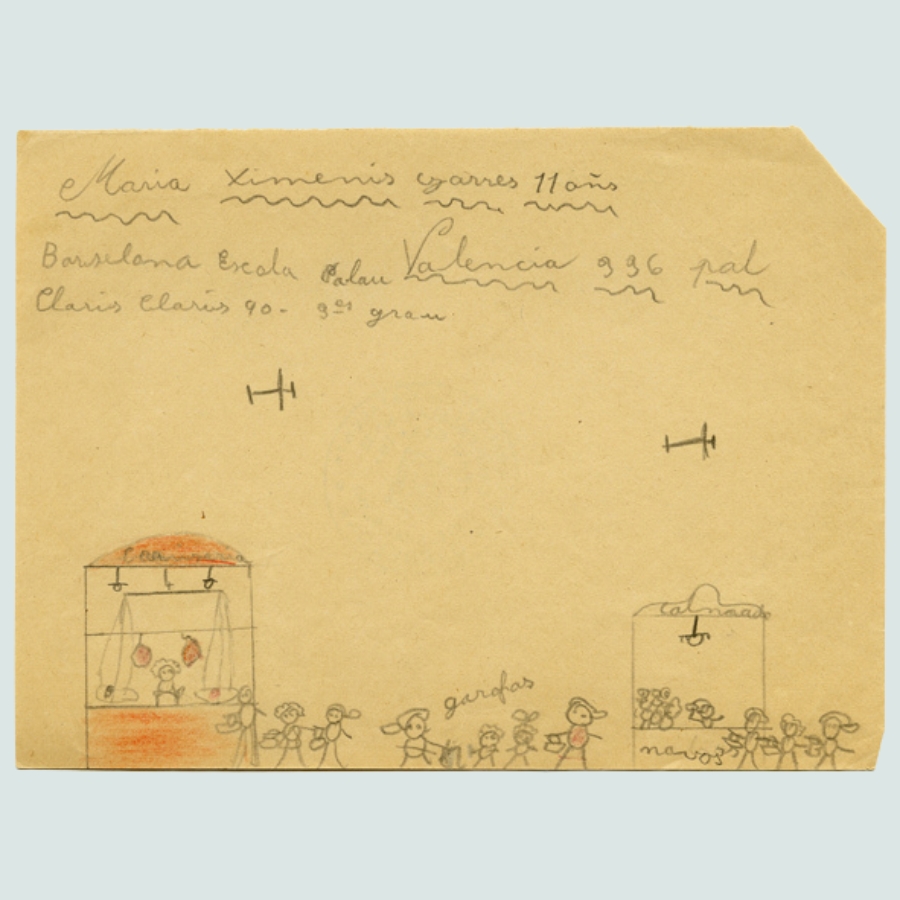 Maria Ximenis Garres 11 añs
Barselona Escola Palau Valencia 936 pal
Claris Claris 90. 3er grau
garofas
nabos